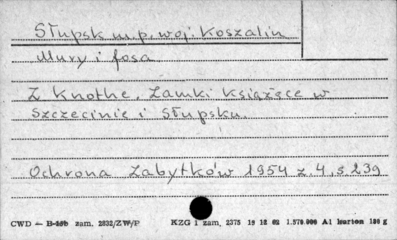 Słupsk m.p. woj. Koszalin
Mury i fosa.
Z Knothe, Zamki książęce w
Szczecinie i Słupsku.
Ochrona Zabytków 1954 z. 4, s. 239
CWD — B-26b zam. 2832/ZW/P KZG 1 zam. 2375 19 12 62 1.570.000 A1 karton 180 g